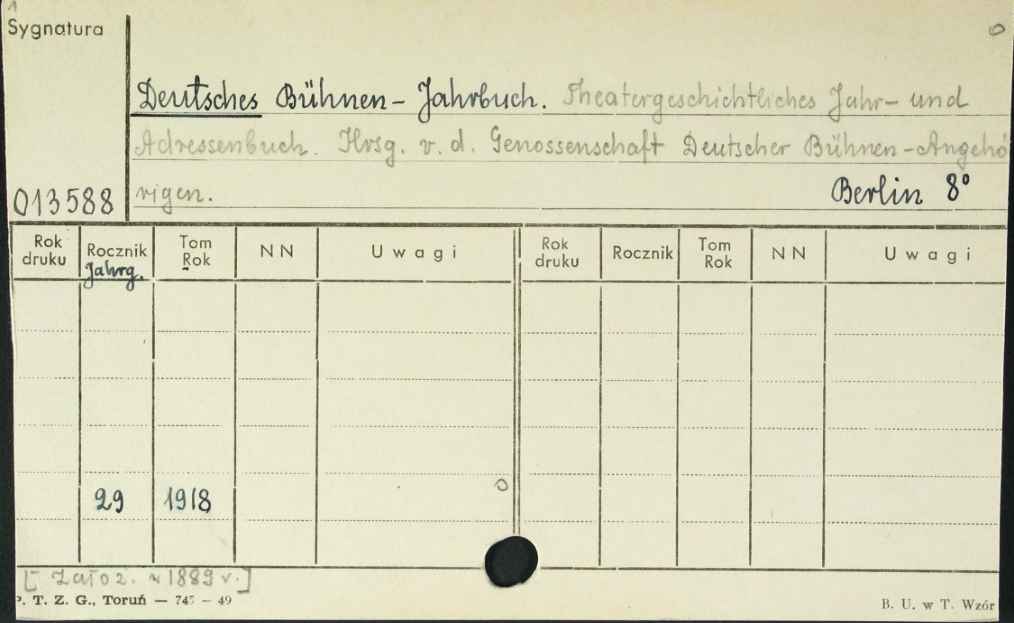 Sygnatura
Deutsches Bühnen-Jahrbuch. Theatergeschichtliches Jahr- und
Adressenbuch. Hrsg. v. d. Genossenschaft Deutscher Bühnen-Angehö
013588 rigen. Berlin 8°
Rok druku Rocznik Jahrg. Tom Rok NN Uwagi Rok druku Rocznik Tom Rok NN Uwagi
29 1918
[Założ. w 1889 r.]
P. T. Z. G., Toruń — 745 — 49 B. U. w T. Wzór